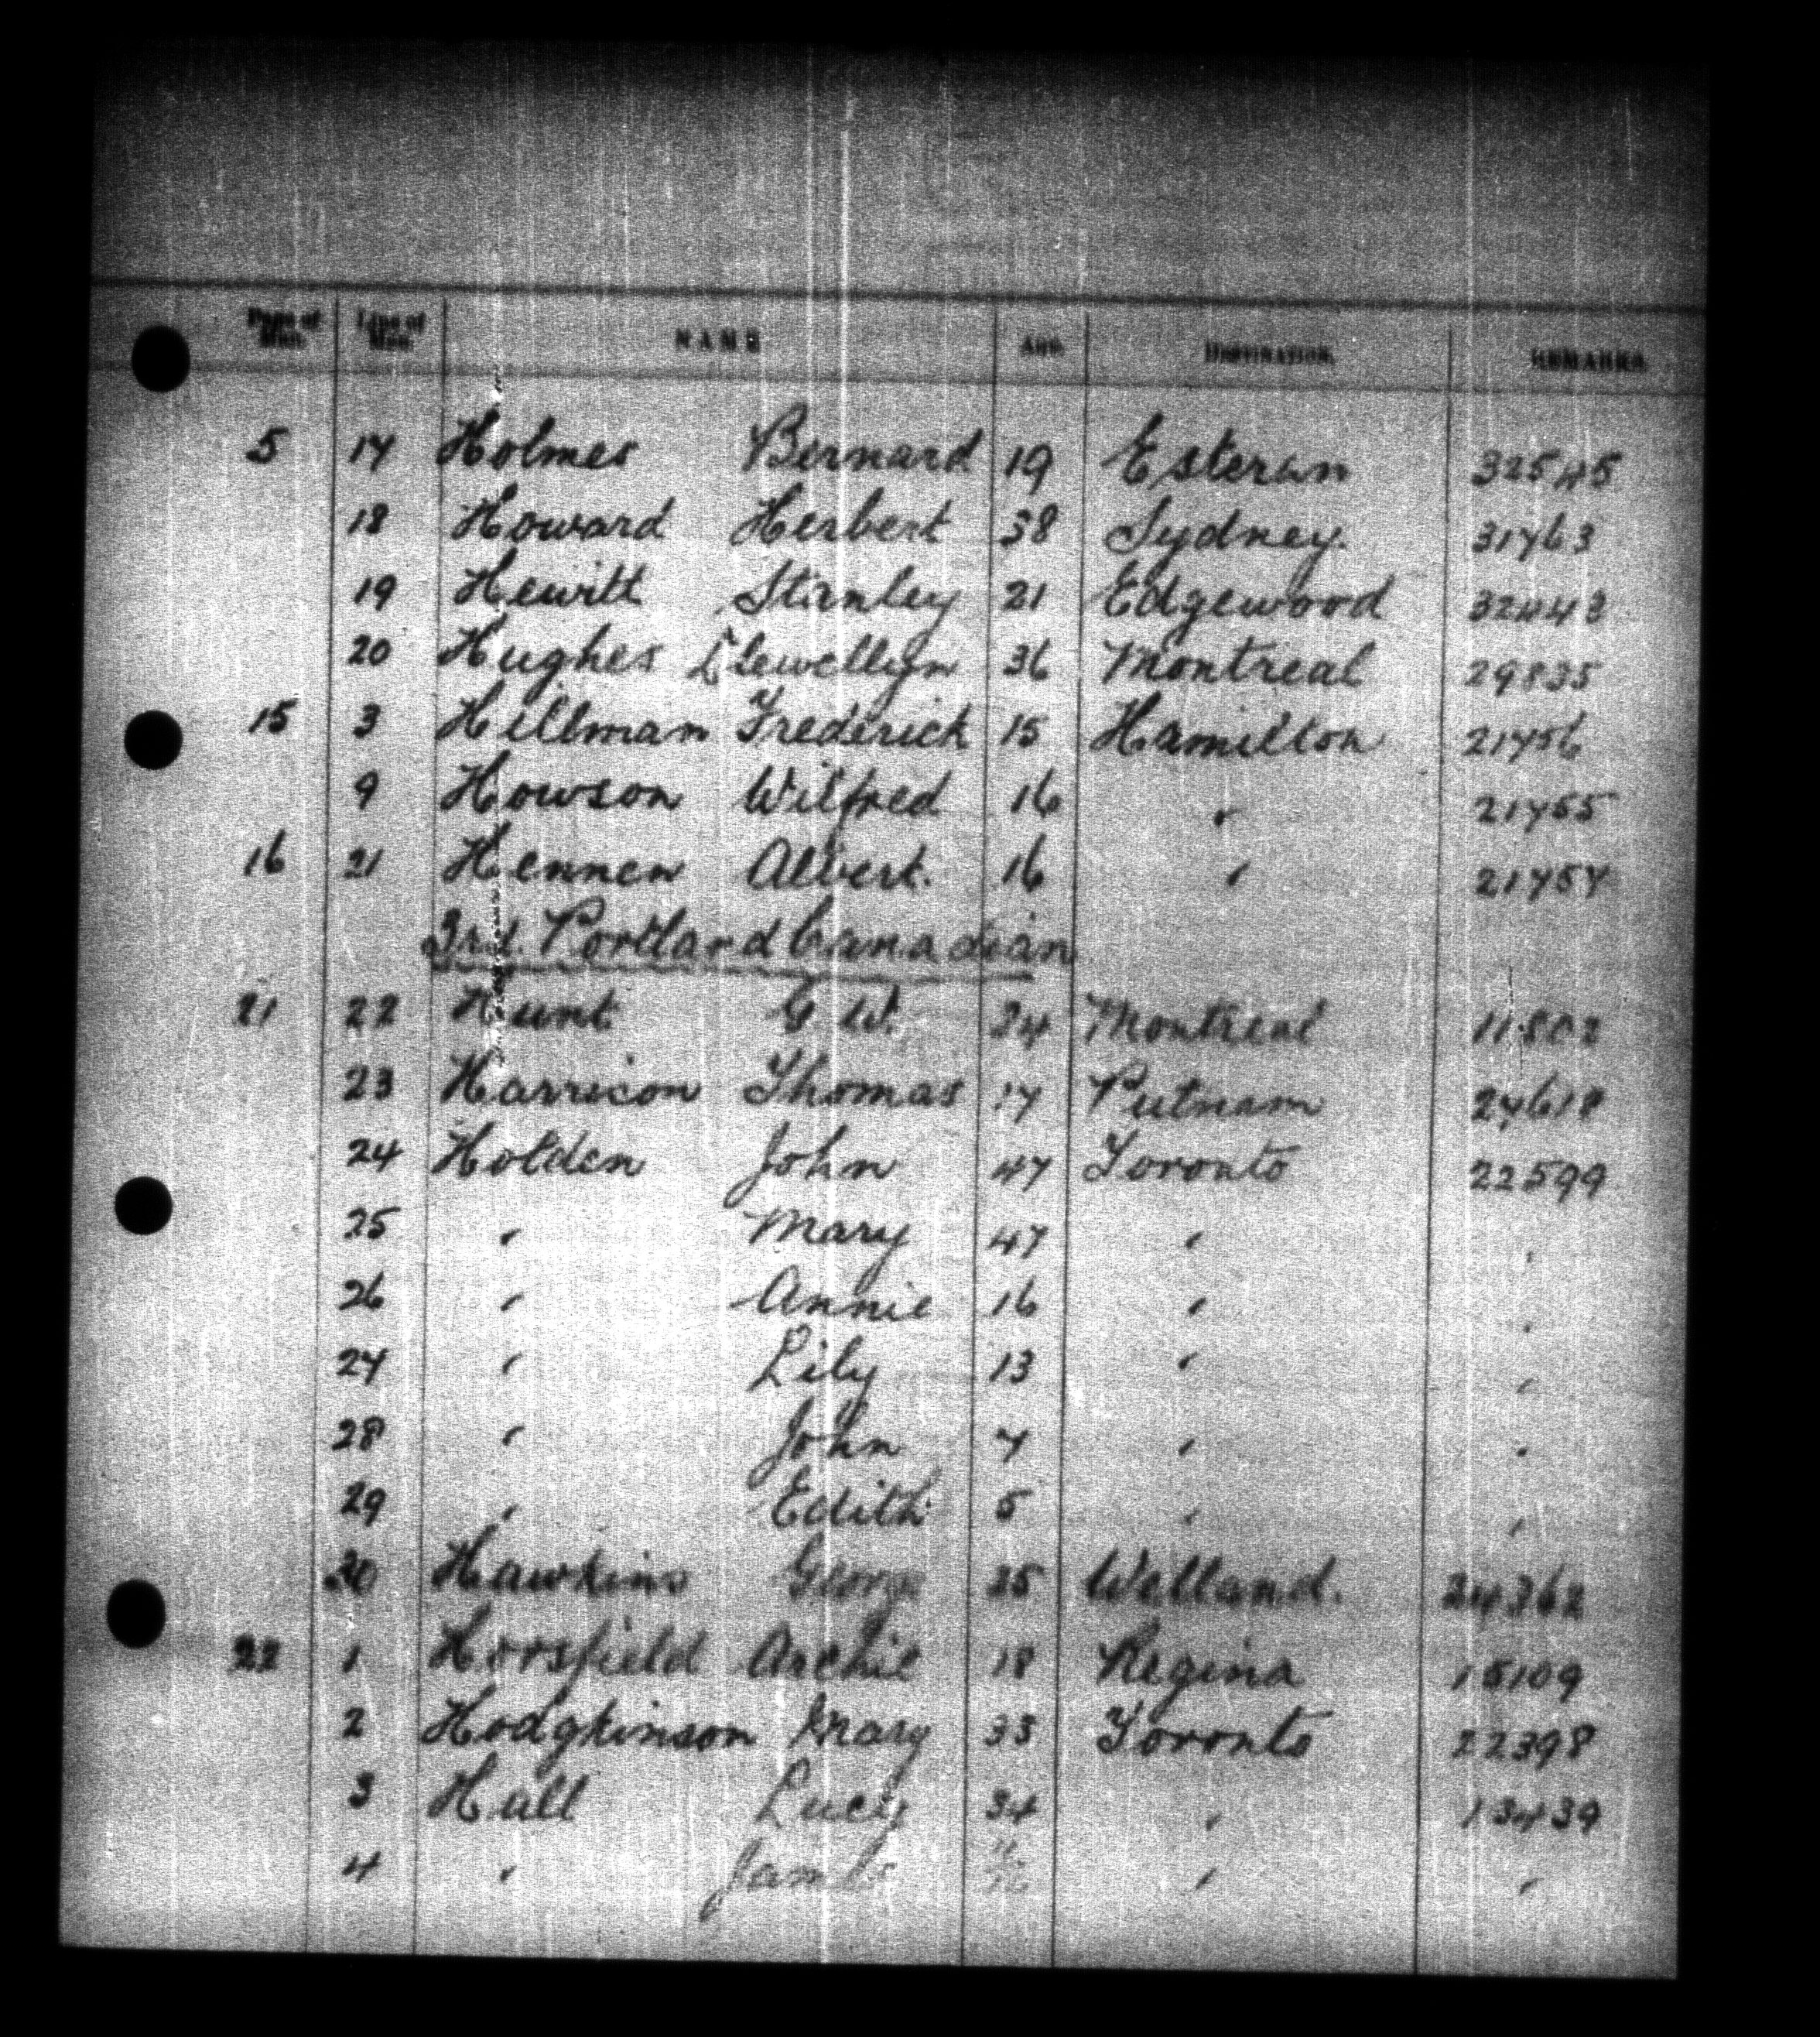 Page of Man. Line of Man. NAME AGE. DESTINATION. REMARKS.
5 17 Holmes Bernard 19 Esteran 32545
18 Howard Herbert 38 Sydney. 31763
19 Hewitt Stanley 21 Edgewood 32443
20 Hughes Llewellyn 36 Montreal 29835
15 3 Hillman Frederick 15 Hamilton 21756
9 Howson Wilfred 16 " 21755
16 21 Hennen Albert. 16 " 21757
3rd. Portland Canadian
21 22 Hunt G W. 34 Montreal 11802
23 Harrison Thomas 17 Putnam 27618
24 Holden John 47 Toronto 22599
25 " Mary 47 " "
26 " Annie 16 " "
27 " Lily 13 " "
28 " John 7 " "
29 " Edith 5 " "
30 Hawkins George 25 Welland. 24362
22 1 Horsfield Archie 18 Regina 15109
2 Hodgkinson Mary 33 Toronto 22398
3 Hall Lucy 34 " 13439
4 " James " "